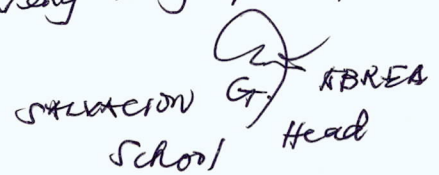 SALVACION G. ABREA
School Head